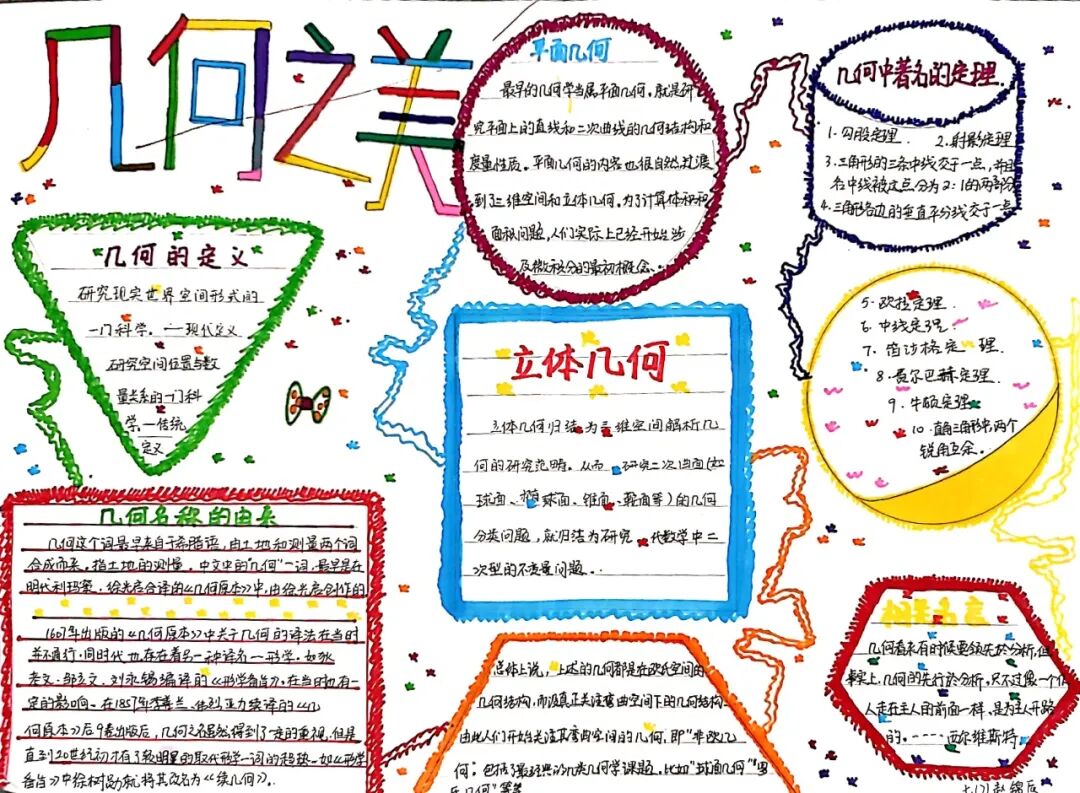 几何之美
平面几何
最早的几何学当属平面几何。就是研
究平面上的直线和二次曲线的几何结构和
度量性质。平面几何的内容也很自然过渡
到了三维空间和立体几何。为了计算体积和
面积问题，人们实际上已经开始涉
及微积分的最初概念。
几何中著名的定理.
1. 勾股定理. 2. 射影定理
3. 三角形的三条中线交于一点，并且
各中线被这点分为2:1的两部分
4. 三角形各边的垂直平分线交于一点
5. 欧拉定理.
6. 中线定理.
7. 笛沙格定理.
8. 费尔巴赫定理.
9. 牛顿定理
10. 直角三角形中，两个
锐角互余.
几何的定义
研究现实世界空间形式的
一门科学。——现代定义
研究空间位置与数
量关系的一门科
学。—传统
定义
立体几何
立体几何归结为三维空间解析几
何的研究范畴。从而 研究二次曲面(如
球面、椭球面、锥面、鞍面等)的几何
分类问题，就归结为研究 代数学中二
次型的不变量问题。
几何名称的由来
几何这个词最早来自于希腊语，由土地和测量两个词
合成而来，指土地的测量。中文中的"几何"一词，最早是在
明代利玛窦、徐光启合译的《几何原本》中，由徐光启创作的
1607年出版的《几何原本》中关于几何的译法在当时
并不通行，同时代也存在着另一种译名—形学，如狄
考文、邹立文、刘永锡编译的《形学备旨》，在当时也有一
定的影响。在1857年李善兰、伟烈亚力续译的《几
何原本》后9卷出版后，几何之名虽然得到了一定的重视，但是
直到20世纪初才有了较明显的取代形学一词的趋势，如《形学
备旨》中徐树勋就将其改名为《续几何》。
总体上说，上述的几何都是在欧氏空间的
几何结构，而没真正关注弯曲空间下的几何结构.
由此人们开始关注其弯曲空间的几何，即"非欧几
何：包括了最经典的几类几何学课题，比如"球面几何""罗
氏几何"等等
相关名言
几何看来有时候要领先於分析，但
事实上，几何的先行於分析，只不过像一个仆
人走在主人的前面一样，是为主人开路
的。----西尔维斯特